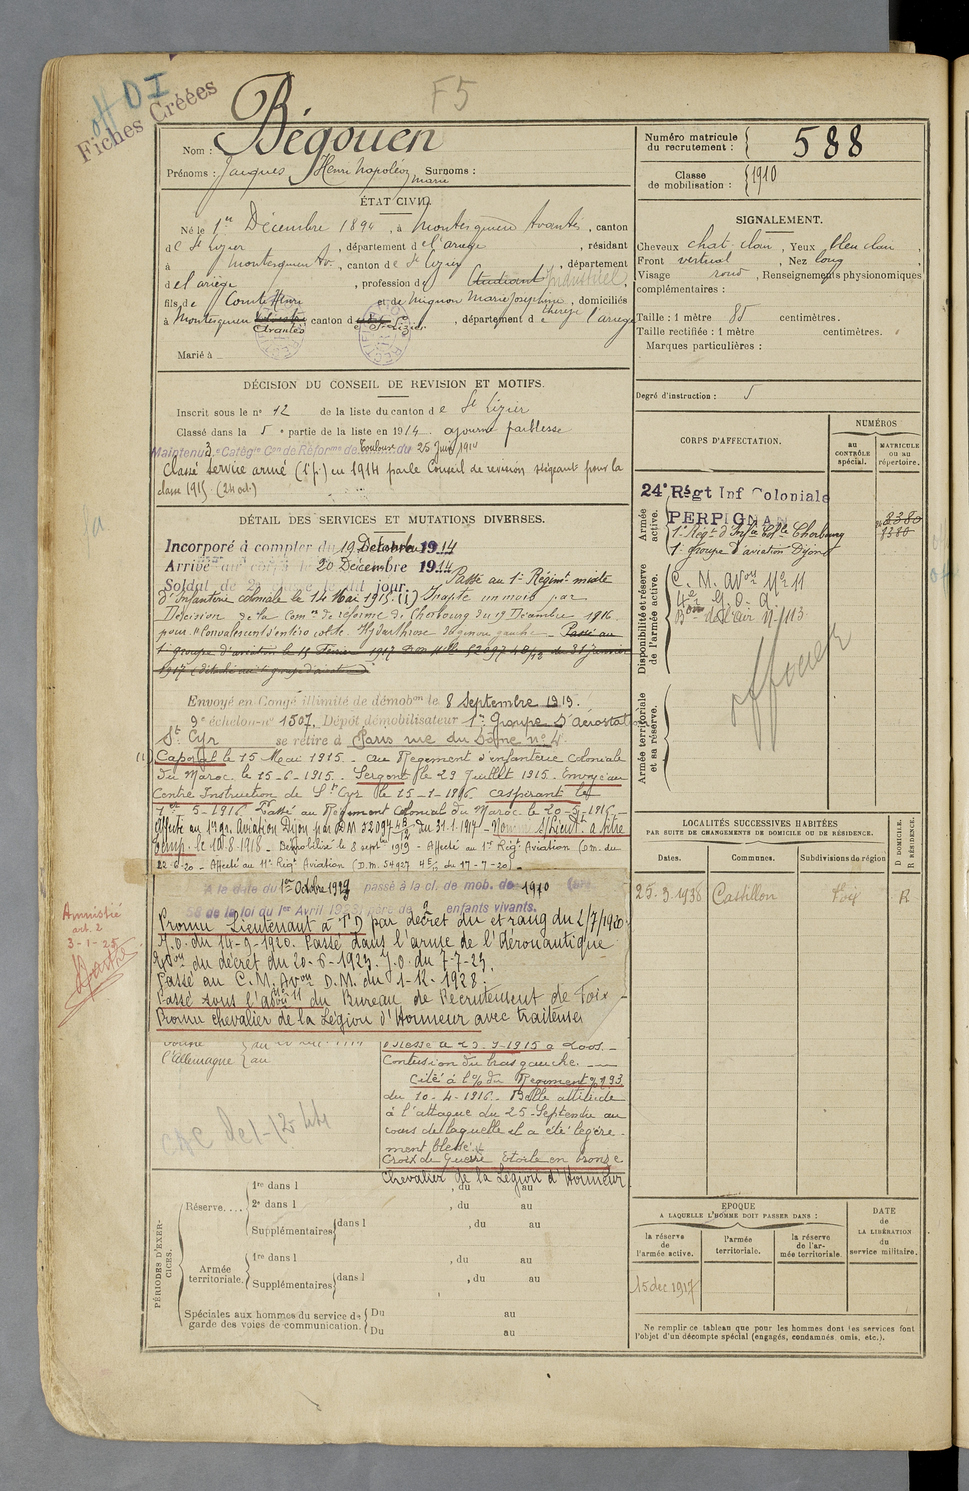 off D I
Fiches Créées
F5
Nom : Bégouen
Prénoms : Jacques Henri Napoléon Marie Surnoms :
ÉTAT CIVIL
Né le 1er Décembre 1894, à Montesquieu Avantès, canton
de St Lizier, département de l'ariège, résidant
à Montesquieu Av., canton de St Lizier, département
de l'ariège, profession d Etudiant Industriel,
fils de Comte Henri et de Mignon Marie Josephine, domiciliés
à Montesquieu Avantès canton de St Lizier, département de l'ariège
Marié à
DÉCISION DU CONSEIL DE REVISION ET MOTIFS.
Inscrit sous le n° 12 de la liste du canton de St Lizier
Classé dans la 5e partie de la liste en 1914. ajourné faiblesse
Maintenu 3e Catégie Con de Réforme de Toulouse du 25 Juin 1914
Classé service armé (1e p.) en 1914 par le Conseil de revision siégeant pour la
classe 1915 (24 oct.)
DÉTAIL DES SERVICES ET MUTATIONS DIVERSES.
Incorporé à compter du 19 Décembre 1914
Arrivé au corps le 20 Décembre 1914
Soldat de 2e classe le dit jour. Passé au 1er Régimt mixte
d'infanterie coloniale le 14 Mai 1915. (1) Inapte un mois par
Décision de la Comon de réforme de Cherbourg du 19 Décembre 1916
pour "Convalescent d'entéro colite. Hydarthrose du genou gauche. Passé au
1er groupe d'aviation le 15 Février 1917 D on Mlle 52097 4 8/13 du 31 Janvier
1917
Envoyé en Congé illimité de démobon le 8 Septembre 1919.
9e échelon-n° 1507. Dépôt démobilisateur 1er Groupe d'aérostation
St Cyr se retire à Paris rue du Dôme n° 4
(1) Caporal le 15 Mai 1915. au Regiment d'infanterie Coloniale
du Maroc le 15-6-1915. Sergent le 29 Juillet 1915. Envoyé au
Centre Instruction de St Cyr le 15-1-1916. aspirant le
1er 5-1916. Passé au Régiment Colonial du Maroc le 20-5-1916.
Affecté au 1er gr. Aviation Dijon par DM 52097 4 8/13 du 31-1-1917. Nommé S/Lieut. à titre
temp. le 10-8-1918. Démobilisé le 8 septbre 1919 - Affecté au 1er Régt Aviation (DM. du
22-5-20 - Affecté au 11e Régt Aviation (D.M. 54427 4 5/12 du 17-7-20).
A la date du 1er Octobre 1929 passé à la cl. de mob. de 1910 (art.
58 de la loi du 1er Avril 1923) père de 2 enfants vivants.
Promu Lieutenant à T.D par décret du et rang du 2/7/1920
J.O. du 14-9-1920. Passé dans l'arme de l'Aéronautique
du décret du 20-6-1923. J.O. du 7-7-23.
Passé au C.M. Avon D.M. du 1-12-1928.
Passé sous l'adon 11 du Bureau de Recrutement de Foix
Promu chevalier de la Légion d'Honneur avec traitement
l'Allemagne { au
Blessé le 25-9-1915 à Loos.
Contusion du bras gauche.
Cité à l'O/ du Régiment n° 93
du 10-4-1916. Belle attitude
à l'attaque du 25 Septembre au
cours de laquelle il a été légère-
ment blessé.
Croix de Guerre Etoile en bronze
Chevalier de la Légion d'Honneur
CAC de 1-12-44
Amnistié
art. 2
3-1-25
PÉRIODES D'EXERCICES.
Réserve.... { 1re dans l , du au
2e dans l , du au
Supplémentaires { dans l , du au
Armée territoriale. { 1re dans l , du au
Supplémentaires { dans l , du au
Spéciales aux hommes du service de garde des voies de communication. { Du au
Du au
Numéro matricule du recrutement : 588
Classe de mobilisation : 1910
SIGNALEMENT.
Cheveux chat. clair, Yeux bleu clair,
Front vertical, Nez long,
Visage rond, Renseignements physionomiques
complémentaires :
Taille : 1 mètre 85 centimètres.
Taille rectifiée : 1 mètre centimètres.
Marques particulières :
Degré d'instruction : 5
CORPS D'AFFECTATION.
NUMÉROS
au CONTRÔLE spécial.
MATRICULE ou au répertoire.
Armée active.
24e Régt Inf Coloniale
PERPIGNAN
1er Régt d'Infie Colle Cherbourg
1er groupe d'aviation Dijon
8380
9380
Disponibilité et réserve de l'armée active.
C. M. Avon N° 11
Bon de l'air N° 113
officier
Armée territoriale et sa réserve.
LOCALITÉS SUCCESSIVES HABITÉES
PAR SUITE DE CHANGEMENTS DE DOMICILE OU DE RÉSIDENCE.
Dates. Communes. Subdivisions de région D DOMICILE. R RÉSIDENCE.
25.3.1936 Castillon Foix R
EPOQUE
A LAQUELLE L'HOMME DOIT PASSER DANS :
la réserve de l'armée active.
l'armée territoriale.
la réserve de l'armée territoriale.
DATE de LA LIBÉRATION du service militaire.
15 dec 1917
Ne remplir ce tableau que pour les hommes dont les services font
l'objet d'un décompte spécial (engagés, condamnés, omis, etc.).